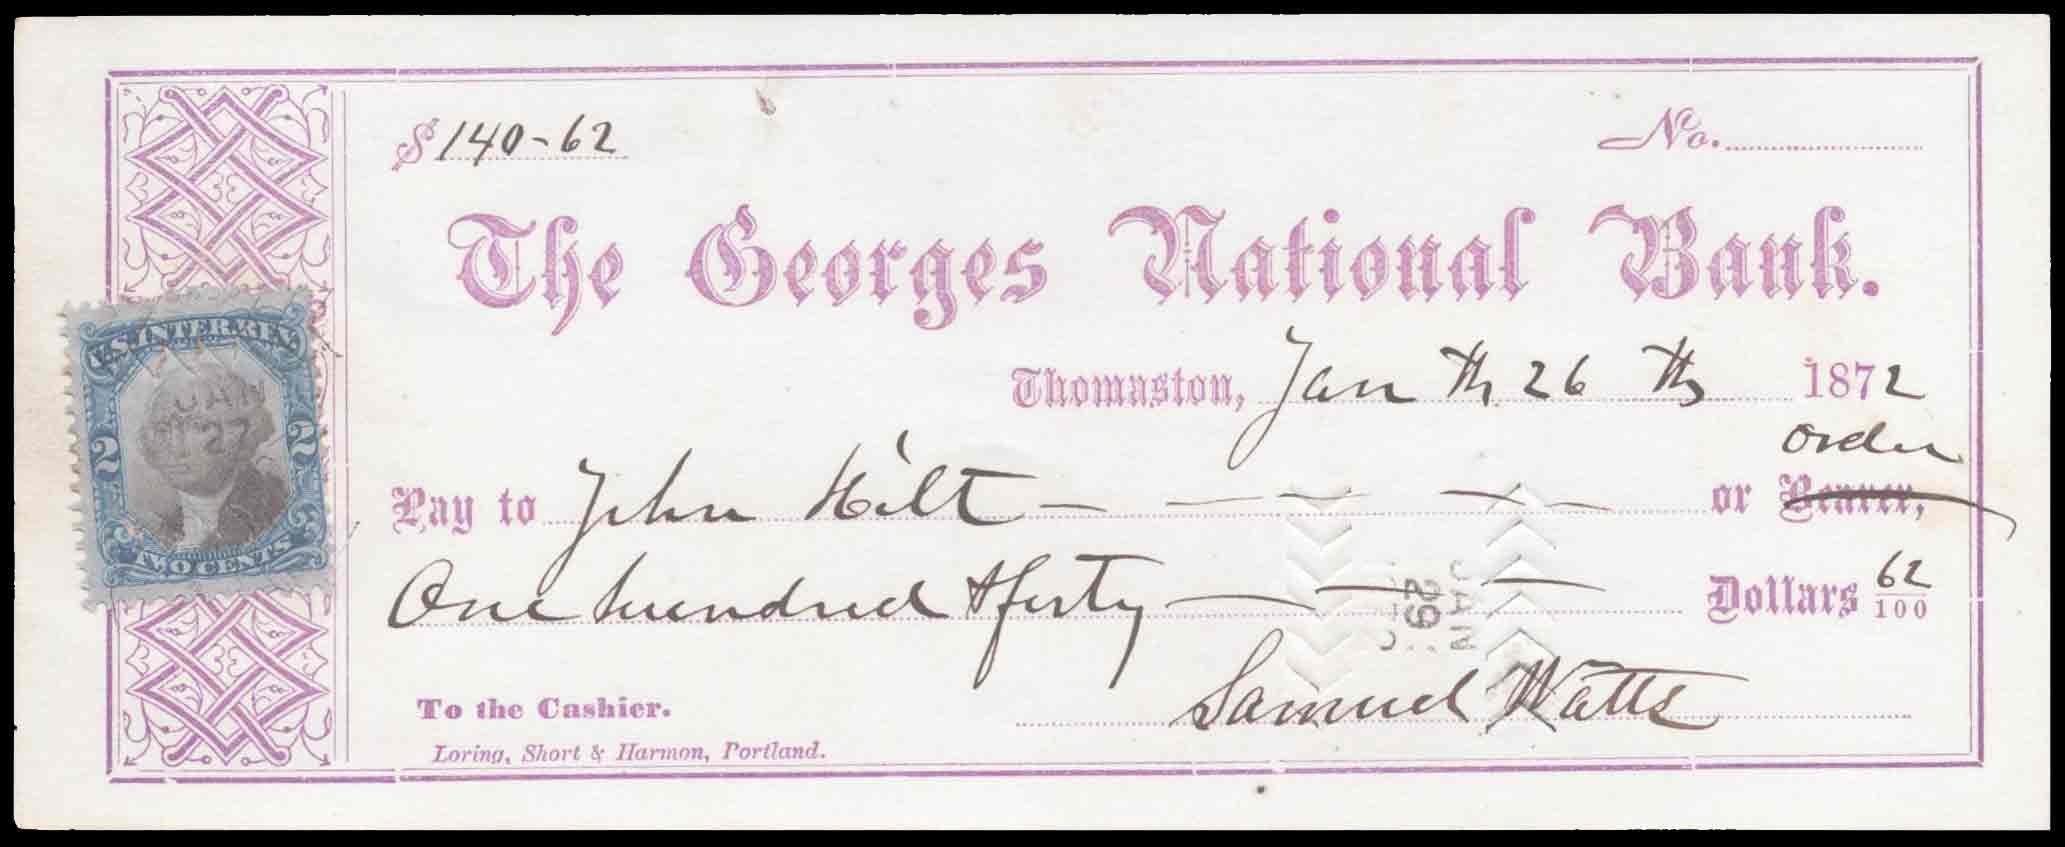 $ 140-62 No.
The Georges National Bank.
Thomaston, Jan th 26 th 1872
order
Pay to John Hilt or Bearer,
One hundred & forty Dollars 62/100
Samuel Watts
To the Cashier.
Loring, Short & Harmon, Portland.
U.S. INTER. REV.
JAN
27
2 2
TWO CENTS
JAN
29